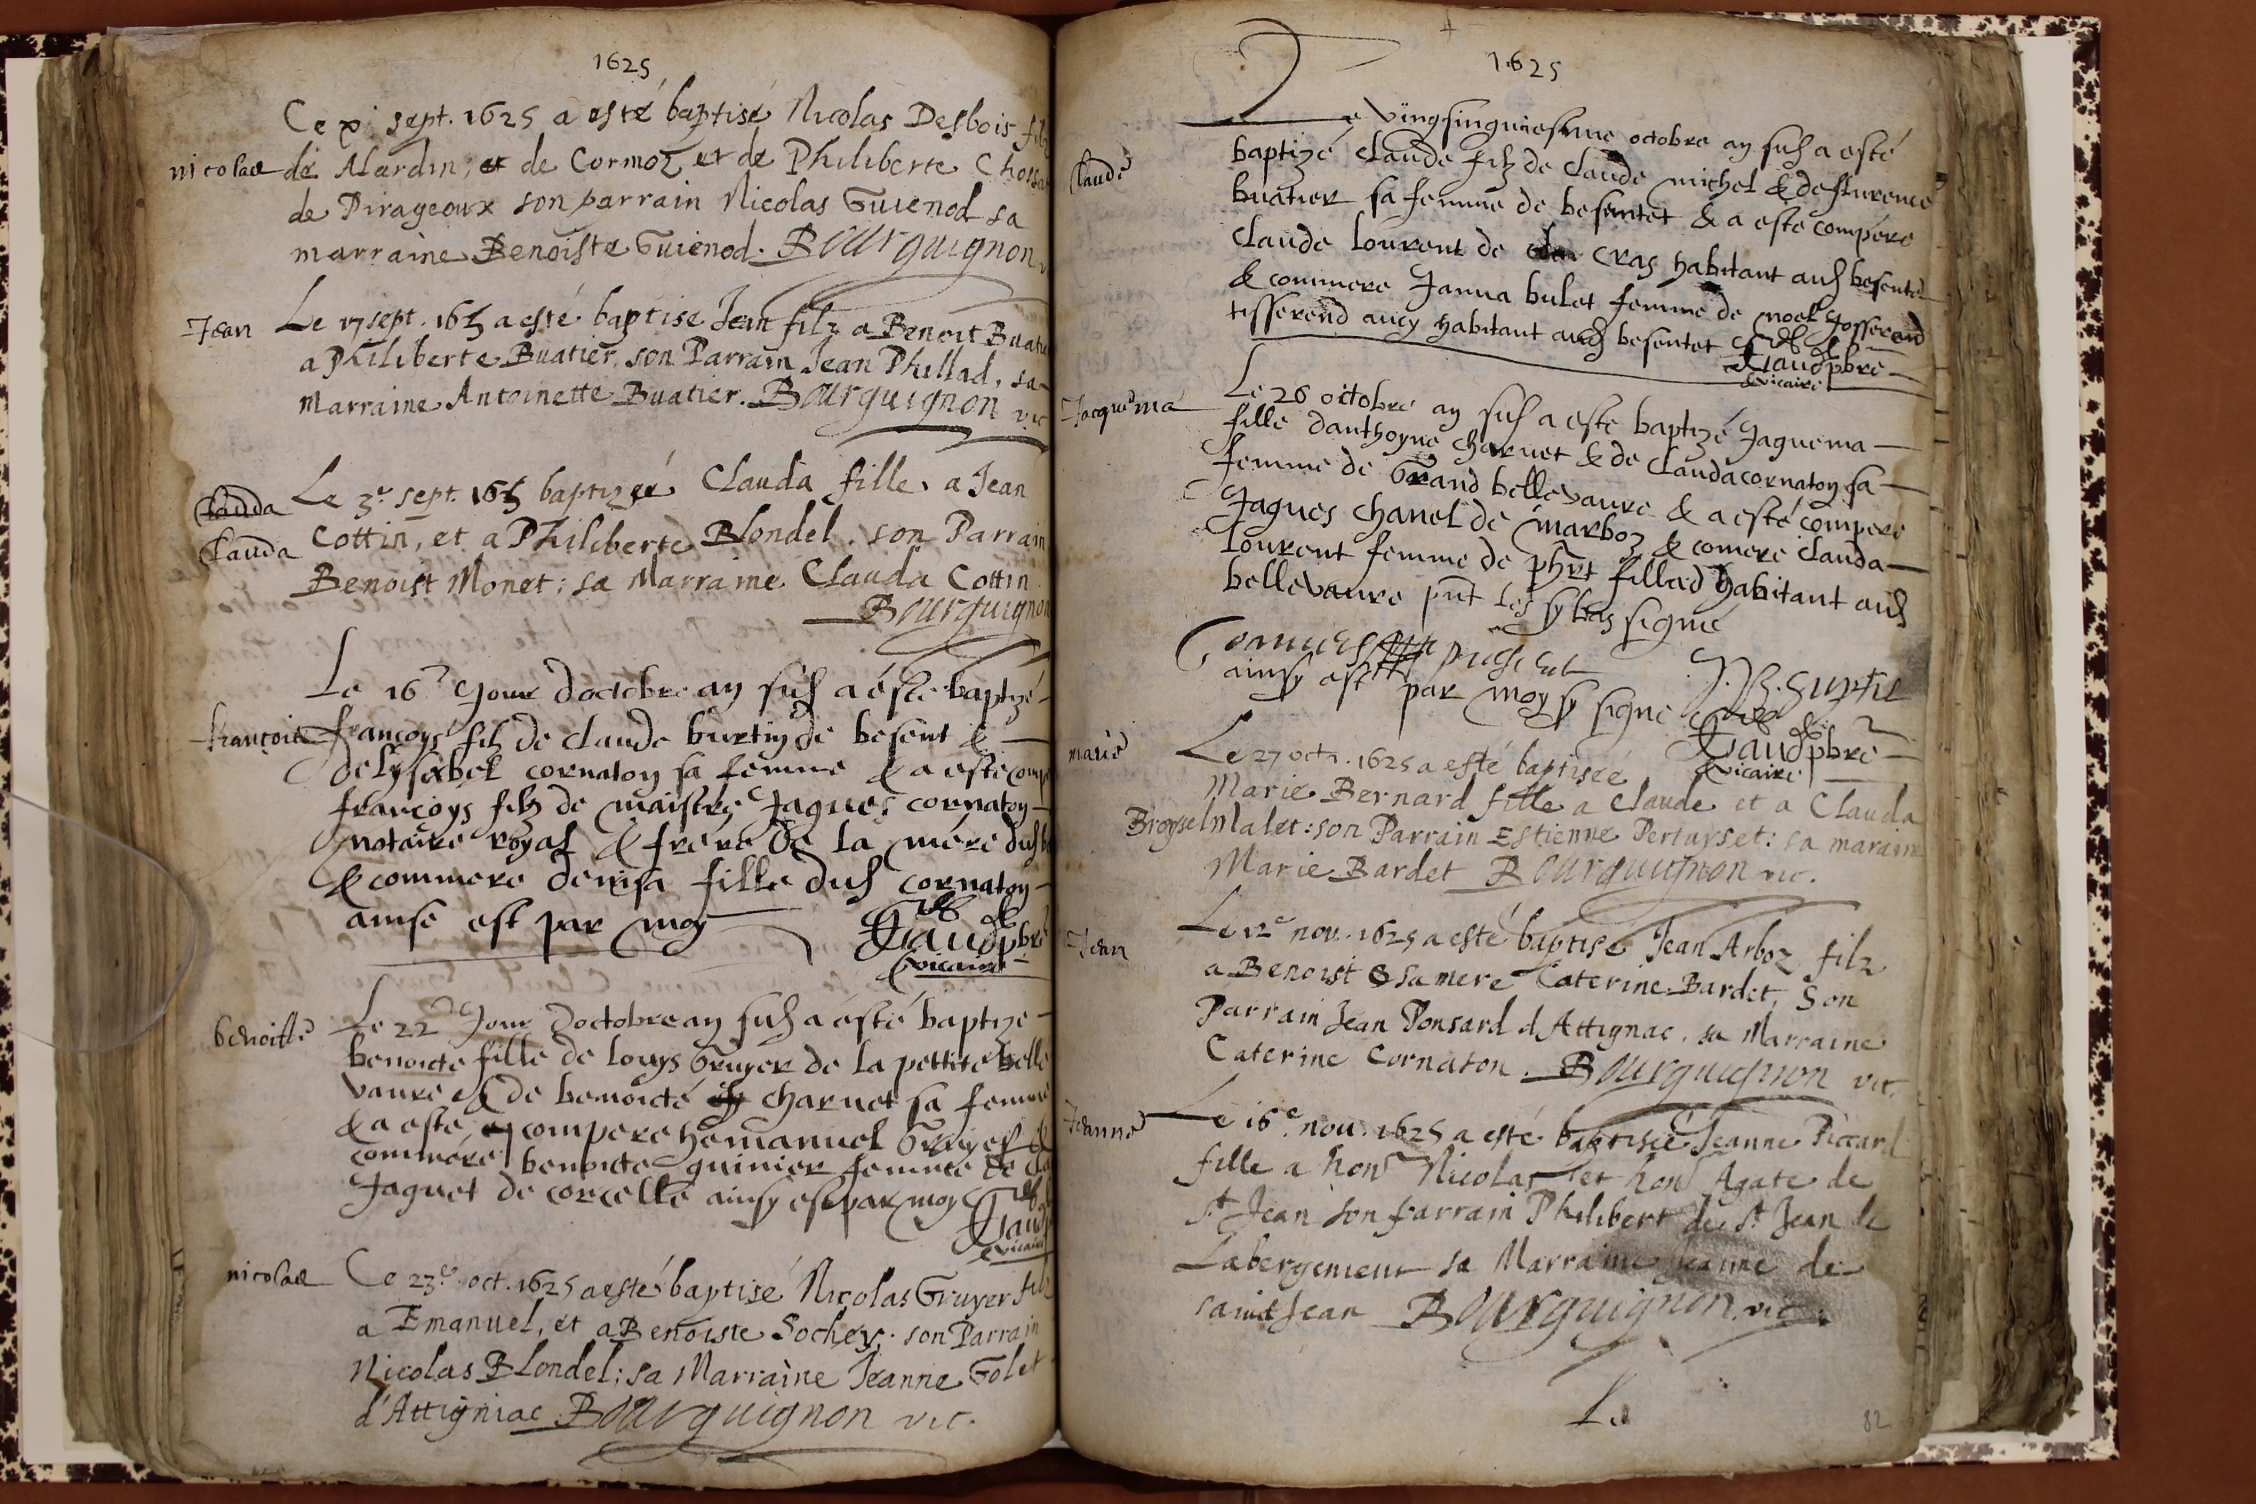 1625
Ce xi sept. 1625 a esté baptisé Nicolas Desbois filz
nicolas
de Mardin, et de Cormoz et de Philiberte
de Pirageoux son parrain Nicolas Guienod sa
marraine Benoiste Guienod. Bourguignon
Jean
Le 17 sept. 1625 a esté baptisé Jean filz a Benoit Buatier
a Philiberte Buatier, son Parrain Jean Phillad, sa
Marraine Antoinette Buatier. Bourguignon vic
Clauda
Le 3e sept. 1625 baptizée Clauda fille a Jean
Clauda
Cottin, et a Philiberte Blondel. son Parrain
Benoist Monet; sa Marraine Clauda Cottin
Bourguignon
Le 16e Jour doctobre an susd a esté baptizé
françois
françoys filz de claude burtin de besent &
delysabel cornaton sa femme & a esté comp
françoys filz de maistre Jaques cornaton
notaire royal & frere de la mere dud
& commere denisa fille dud cornaton
ainse est par moy
pbre
vicaire
benoiste
Le 22e Jour doctobre an susd a esté baptize
benoicte fille de louys Gruyer de la pettite belle
vaure & de benoicte charnet sa femme
& a esté compere hemanuel Gruyer &
commere benoicte quinier femme de
Jaquet de corcelle ainsy est par moy
vicaire
nicolas
Ce 23e oct. 1625 a esté baptisé Nicolas Gruyer filz
a Emanuel, et a Benoiste Sochey; son Parrain
Nicolas Blondel; sa Marraine Jeanne Golet
d'Attigniac Bourguignon vic.
1625
Le vingsinquiesme octobre an susd a esté
Claude
baptizé claude filz de claude michel & de flurence
buatier sa femme de besentet & a esté compere
claude lourent de cras habitant aud besentet
& commere Janna bulet femme de noel Josserand
tisserend aucy habitant aud besentet
pbre
vicaire
Jaquema
Le 26 octobre an susd a esté baptizé Jaquema
fille danthoyne charnet & de clauda cornaton sa
femme de Grand bellevaure & a esté compere
Jaques chanel de marboz & comere clauda
lourent femme de phrt fillad habitant aud
bellevaure pnt les sy bas signé
ainsy est par moy sy signé
pbre
vicaire
marie
Le 27 oct. 1625 a esté baptisée
Marie Bernard fille a Claude et a Clauda
Broyssel Malet: son Parrain Estienne Pertuyset: sa maraine
Marie Bardet Bourguignon vic.
Jean
Le 12e nov. 1625 a esté baptisé Jean Arboz filz
a Benoist & sa mere Caterine Bardet, Son
Parrain Jean Ponsard d'Attignac, sa Marraine
Caterine Cornaton. Bourguignon vic.
Jeanne
Le 16e nov. 1625 a esté baptisée Jeanne Piccard
fille a hon Nicolas et hon Agate de
st Jean son parrain Philibert de st Jean de
Labergement sa Marraine Jeanne de
saint Jean Bourguignon vic.
Le
82